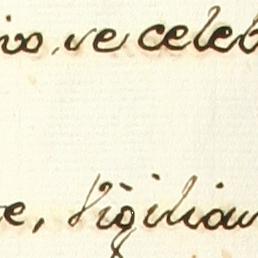 ivo, ve celeb
e, Vigilian